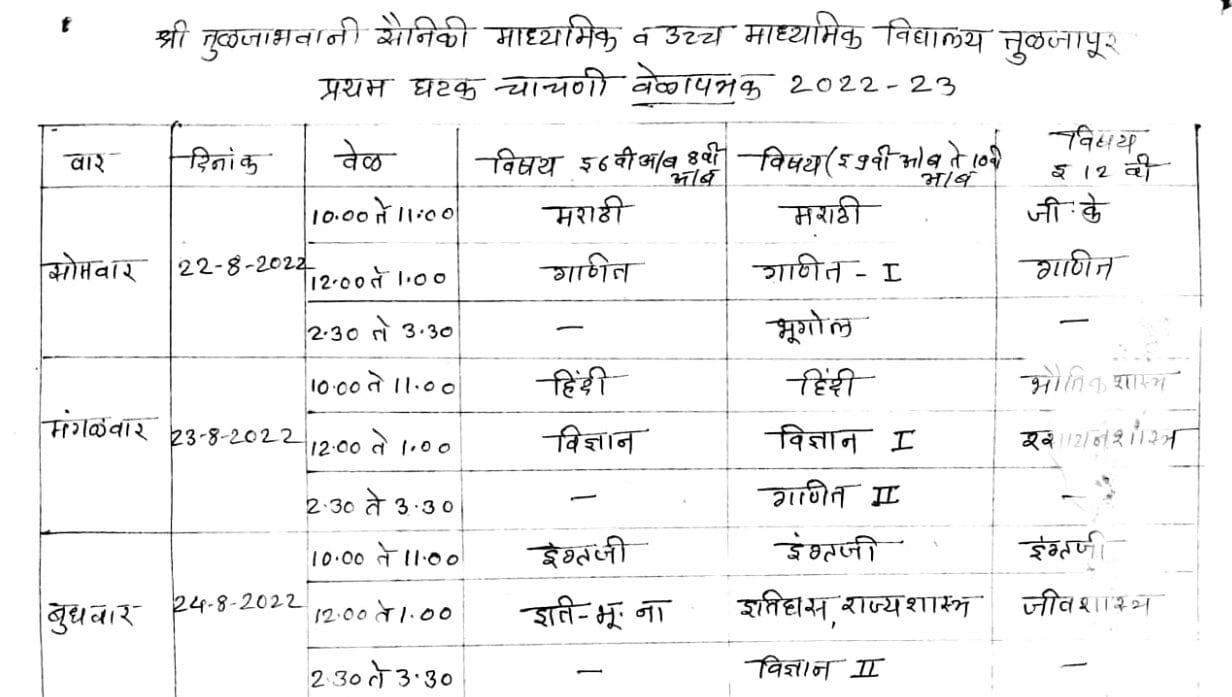 श्री तुळजाभवानी सैनिकी माध्यमिक व उच्च माध्यमिक विद्यालय तुळजापूर
प्रथम घटक चाचणी वेळापत्रक 2022-23
वार दिनांक वेळ विषय इ 6 वी अ/ब 8वी अ/ब विषय (इ 9वी अ/ब ते 10वी अ/ब विषय इ 12 वी
10.00 ते 11.00 मराठी मराठी जी. के
सोमवार 22-8-2022 12.00 ते 1.00 गणित गणित - I गणित
2.30 ते 3.30 — भूगोल —
10.00 ते 11.00 हिंदी हिंदी भौतिकशास्त्र
मंगळवार 23-8-2022 12.00 ते 1.00 विज्ञान विज्ञान I रसायनशास्त्र
2.30 ते 3.30 — गणित II —
10.00 ते 11.00 इंग्रजी इंग्रजी इंग्रजी
बुधवार 24-8-2022 12.00 ते 1.00 इति-भू. ना इतिहास, राज्यशास्त्र जीवशास्त्र
2.30 ते 3.30 — विज्ञान II —